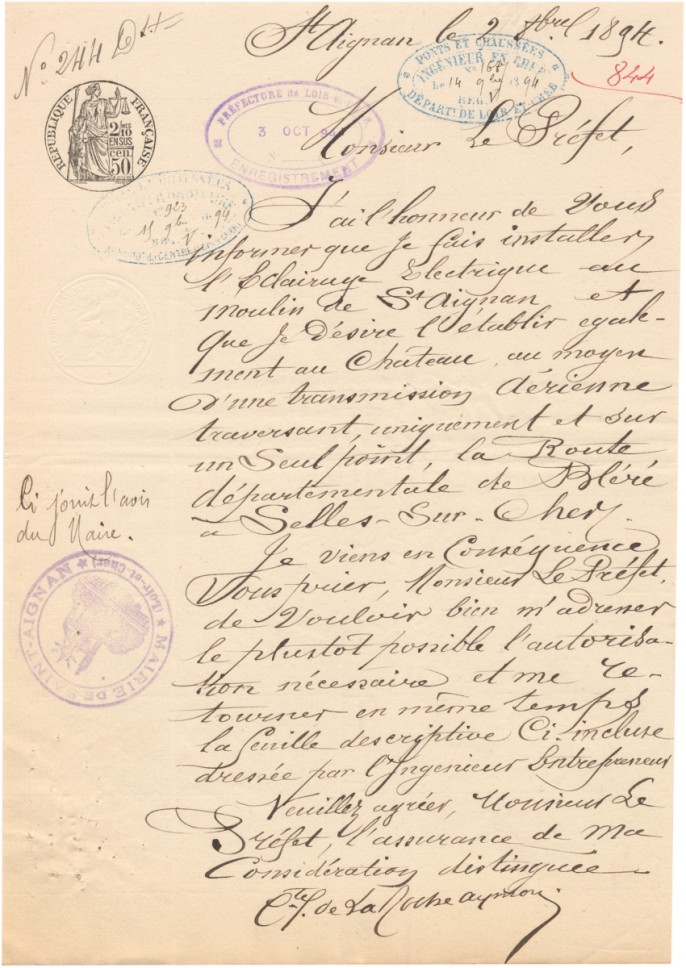 N° 244 D
St Aignan le 2 8brel 1894.
PONTS ET CHAUSSÉES
INGÉNIEUR EN CHEF
N° 168
Le 14 9bre 1894
REG. V
DÉPARTt DE LOIR ET CHER
844
RÉPUBLIQUE FRANÇAISE
2/10
EN SUS
cen.
50
PRÉFECTURE de LOIR-et-CHER
3 OCT
ENREGISTREMENT
Monsieur Le Préfet,
N° 923
15 9b 94
V
J'ai l'honneur de Vous
informer que Je fais installer
l'Eclairage Electrique au
moulin de St Aignan et
que Je désire l'établir egale-
ment au Château, au moyen
d'une transmission Aérienne
traversant, uniquement et sur
un Seul point, la Route
départementale de Bléré
à Selles-Sur-Cher.
Ci joint l'avis
du Maire.
MAIRIE DE SAINT-AIGNAN
(Loir-et-Cher)
Je viens en Conséquence
Vous prier, Monsieur Le Préfet,
de Vouloir bien m'adresser
le plustot possible l'autorisa-
tion nécessaire et me re-
tourner en même temps
la feuille descriptive Ci-incluse
dressée par l'Ingenieur Entrepreneur
Veuillez agréer, Monsieur Le
Préfet, l'assurance de Ma
Considération distinguée
de La Roche aymon